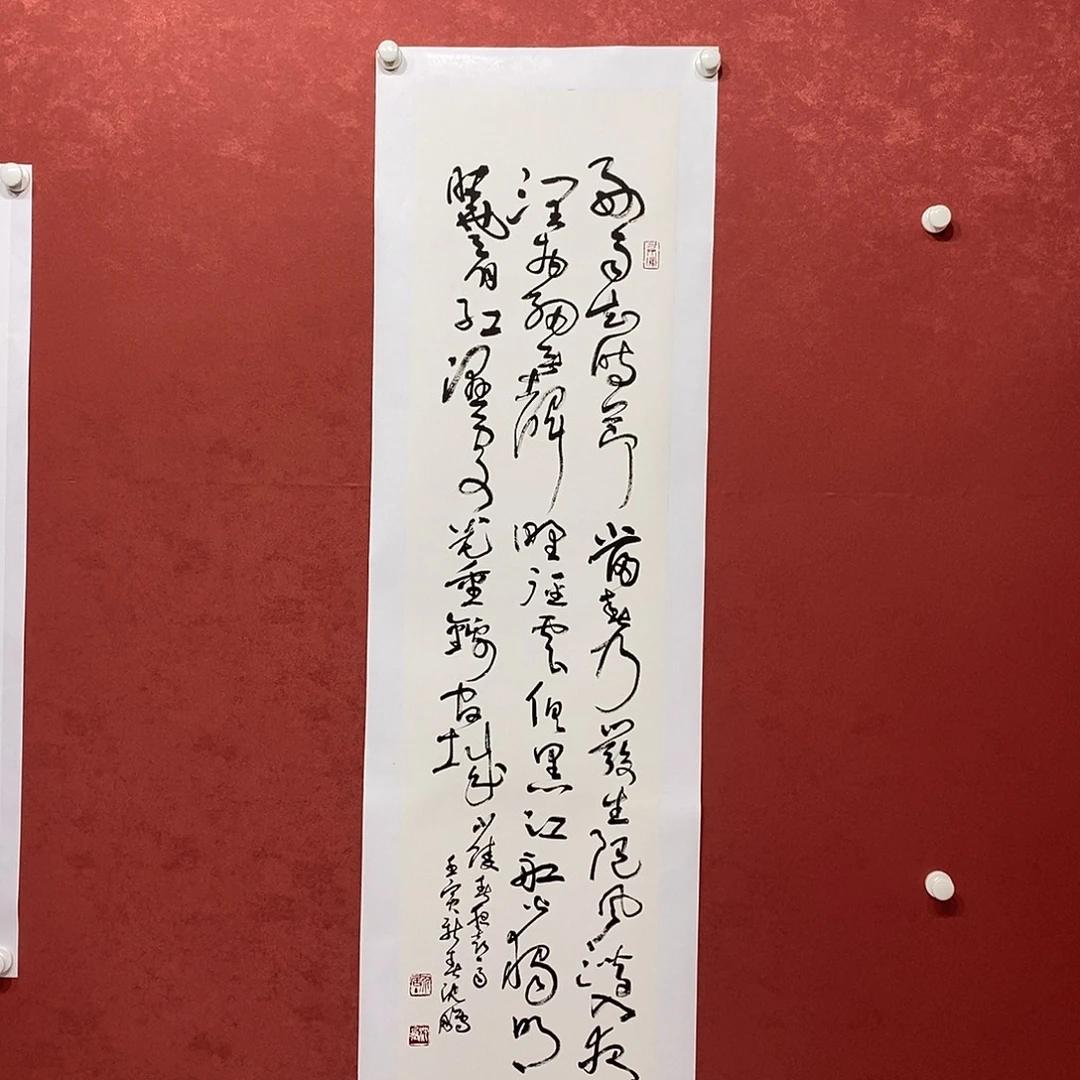 好雨知時節當春乃發生隨風潛入夜
潤物細無聲野徑雲俱黑江船火獨明
曉看紅濕處花重錦官城
少陵春夜喜雨
壬寅新春沈鵬